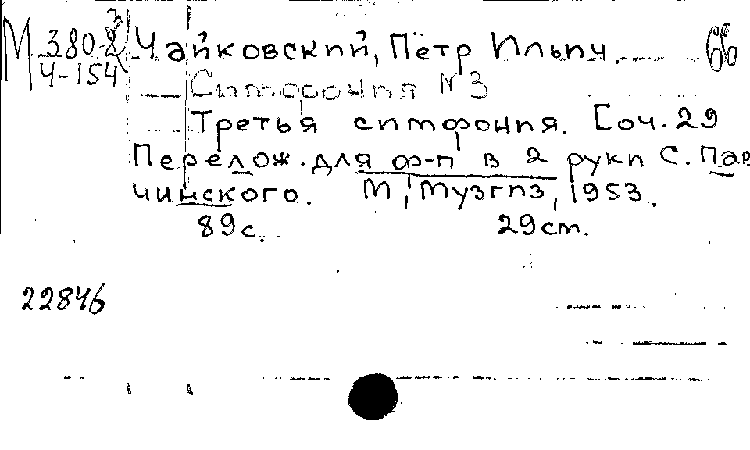 М 380-2 Чайковский, Пётр Ильич. бб
Ч-154 Симфония №3
Третья симфония. Соч. 29
Перелож. для ф-п в 2 руки С. Пав
чинского. М, Музгиз, 1953.
89с. 29см.
22846